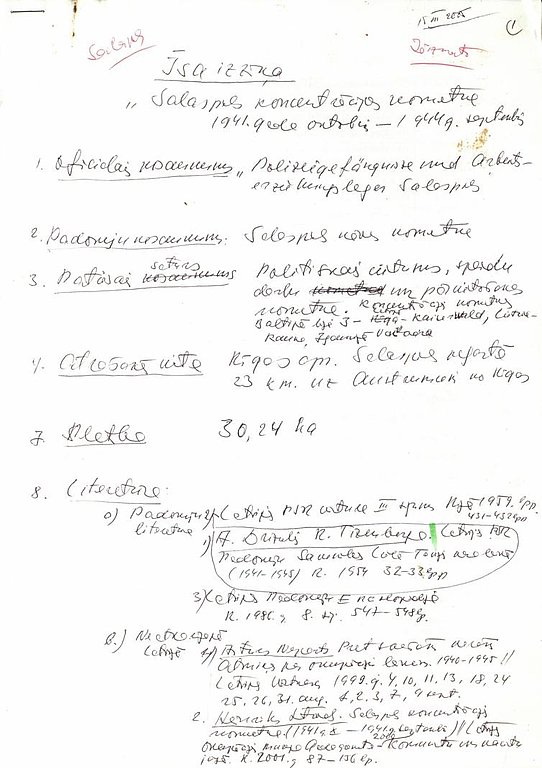 15 III 2005
1
Salaspils
Īsa izziņa
"Salaspils koncentrācijas nometne
1941. gada oktobris – 1944 g. septembris
1. Oficiālais nosaukums "Polizeigefängnis und Arbeits-
erziehungslager Salaspils
2. Padomju nosaukums: Salaspils nāves nometne
3. Patiesais saturs nosaukums Politiskais cietums, spaidu
darbu nometne un pāraudzināšanas
nometne. Koncentrācijas nometnes
Baltijā bija 3 – Rīgā – Kaiserwald, Lietuva –
Kauņa, Igaunijā Vaivara
4. Atrašanās vieta Rīgas apr. Salaspils pagastā
23 km. uz Austrumiem no Rīgas
7. Platība 30,24 ha
8. Literatūra:
a) Padomju literatūra Latvijas PSR vēsture III sējums Rīgā 1959. g.
431-432 lpp
A. Drīzulis R. Latvijas PSR
Padomju Savienības Lielā Tēvijas kara laikā
(1941-1945) R. 1954 32-33 lpp
3) Latvijas Padomju Enciklopēdija
R. 1986., 8. sēj. 547-548 lp.
b.) Neatkarīgajā
Latvijā
Latvijas okupācijas laikā. 1940-1945 //
Latvijas Vēstnesis 1999. g. 4, 10, 11, 13, 18, 24
25, 26, 31. aug. 1, 2, 3, 7, 9 sept.
2. Heinrihs Strods. Salaspils koncentrācijas
nometne (1941. g. – 1944. g. septembris) // Latvijas
okupācijas muzeja Gadagrāmata 2000 Komunistu un nacistu
jūgā. R. 2001., 87-156 lp.